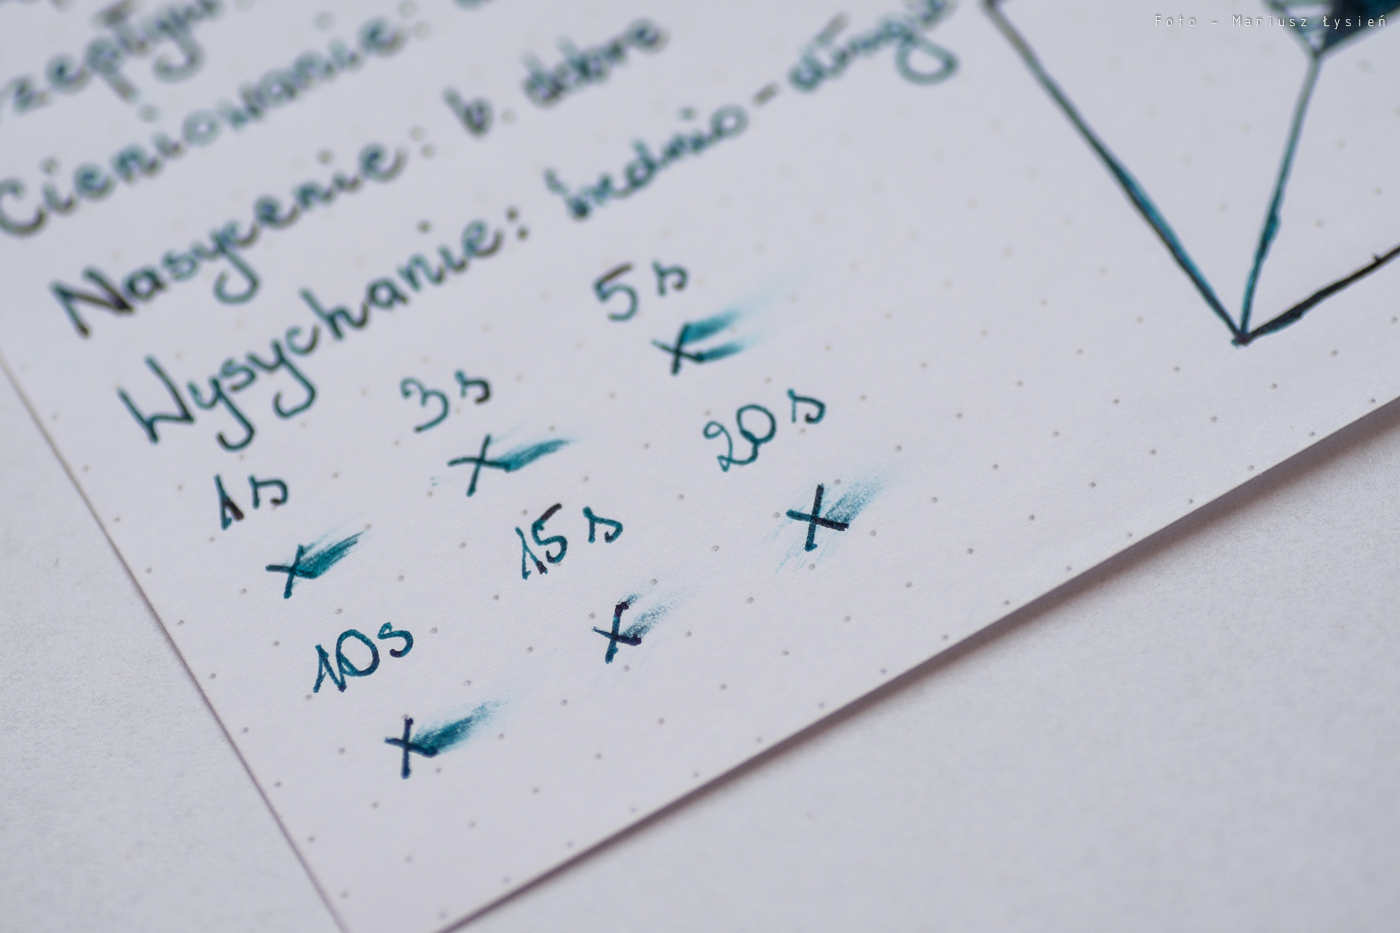 Foto - Mariusz Łysień
Cieniowanie:
Nasycenie: b. dobre
Wysychanie: średnio - długie
1s 3s 5s
x x x
10s 15s 20s
x x x